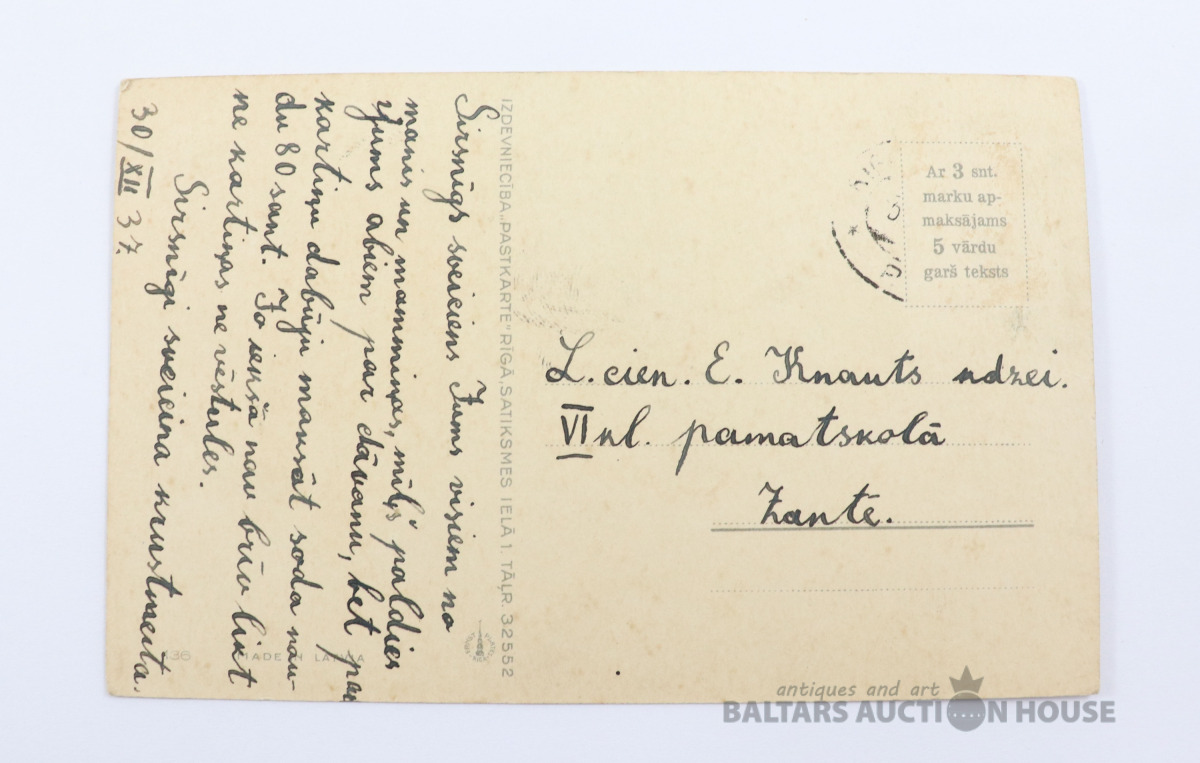 Sirsnīgs sveiciens Jums visiem no
manis un mammiņas, mīļš paldies
Jums abiem par dāvanu, bet par
kartiņu dabūju maksāt soda nau-
du 80 sant. Jo iekšā nav brīv likt
ne kartiņas ne vēstules.
Sirsnīgi sveicina krustmeita.
30/XII 37.
IZDEVNIECĪBA „PASTKARTE" RĪGĀ, SATIKSMES IELĀ 1. TĀĻR. 32552
MADE IN LATVIA
Ar 3 snt.
marku ap-
maksājams
5 vārdu
garš teksts
L. cien. E. Knauts ndzei.
VI kl. pamatskolā
Zantē.
antiques and art
BALTARS AUCTION HOUSE